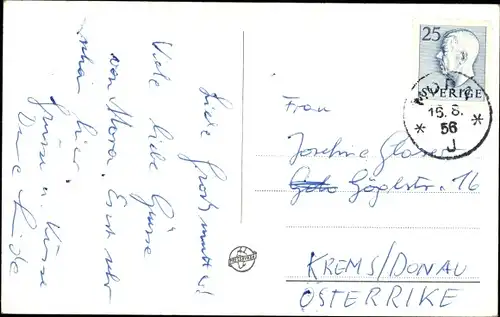 Liebe Großmutter!
Viele liebe Grüsse
von Mora. Es ist sehr
schön hier.
Grüsse u. Küsse
Deine
25
SVERIGE
MORA
15.8.
56
J
Frau
Josefine Glaser
Göglstr. 16
KREMS/DONAU
ÖSTERRIKE